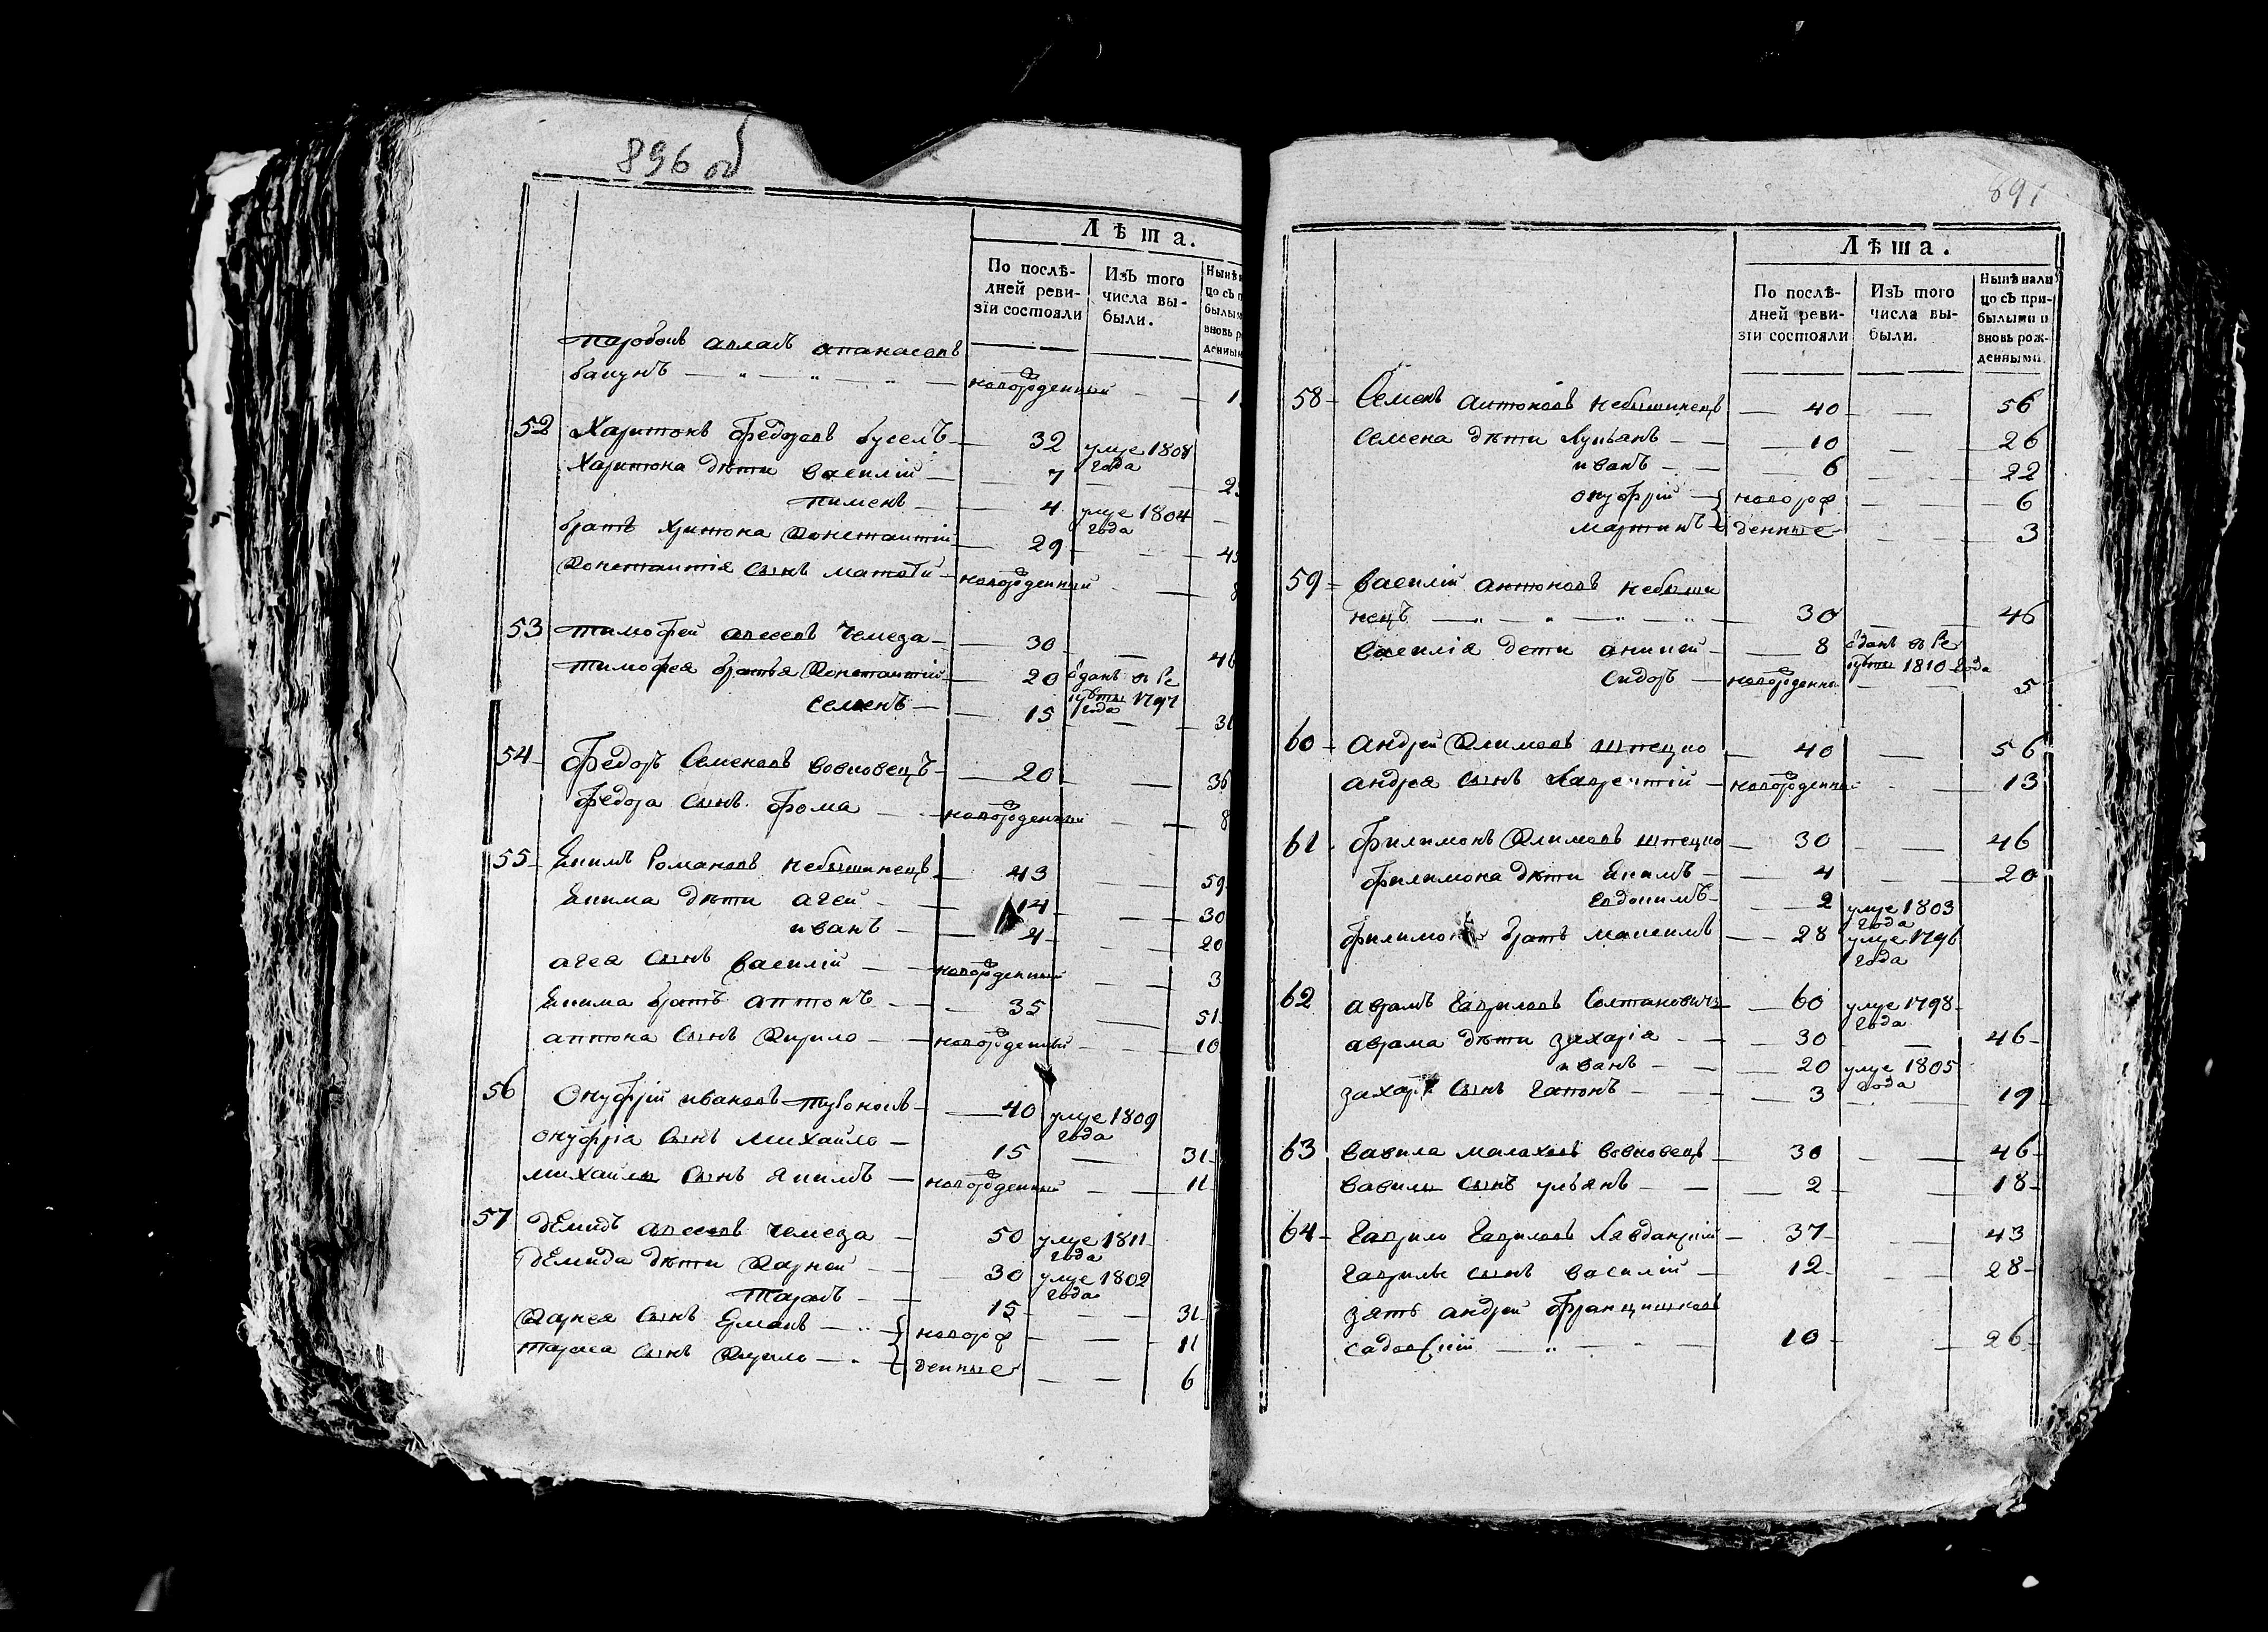 896 об
Лѣта.
По послѣ-
дней реви-
зіи состояли
Изъ того
числа вы-
были.
Нынѣ
цо съ п
былым
вновь р
денным
паробокъ власъ апанасовъ
бакунъ — " — " — " — новорожденный — — 1
52 Харитонъ Федоровъ буселъ — 32 умре 1808
года
Харитона дѣти василій — 7 — — 2
пименъ — 4 умре 1804
года —
братъ Хритона Константій — 29 — — 45
Константія сынъ матвѣй — новорожденный — 8
53 тимофей авсеевъ Чемеза — 30 — 46
тимофея братья Константій — 20 Зданъ въ Ре
круты 1797
года
семенъ — 15 — 31
54 Федоръ Семеновъ вовковецъ — 20 — — 36
Федора сынъ Фома — новорожденный — — 8
55 Якимъ Романовъ небышинецъ — 43 — — 59
Якима дѣти агей — 14 — — 30
иванъ — 4 — — 20
агея сынъ василій — новорожденный — — 3
Якима братъ антонъ — 35 — — 51
антона сынъ Кирило — новорожденный — — 10
56 Онуфрій ивановъ — 40 умре 1809
года
онуфрія сынъ михайло — 15 — 31
михайлы сынъ якимъ — новорожденный — — 11
57 Демидъ авсеевъ чемеза — 50 умре 1811
года
Демида дѣти Карней — 30 умре 1802
года
Тарасъ — 15 — — 31
Карнея сынъ Ермакъ — новорож — — 11
тараса сынъ Кирило — денные — — 6
897
Лѣта.
По послѣ-
дней реви-
зіи состояли
Изъ того
числа вы-
были.
Нынѣ нали
цо съ при-
былыми и
вновь рож-
денными.
58 Семенъ антоновъ небышинецъ — 40 — — 56
Семена дѣти Лукъянъ — 10 — — 26
иванъ — 6 — — 22
онуфрій — новорож — — 6
мартинъ — денные — — — 3
59 василій антоновъ небыши
нецъ — " — " — " — " — 30 — 46
василія дети аникей — 8 Зданъ въ Ре
круты 1810 года
Сидоръ — новорожденны — — 5
60 андрей Климовъ штецко — 40 — 56
андрея сынъ Лаврентій — новорожденный — — 13
61 Филимонъ Климовъ штецко — 30 — — 46
Филимона дѣти Якимъ — 4 — 20
Евдокимъ — 2 умре 1803
года
Филимона братъ максимъ — 28 умре 1796
года
62 аврамъ Гавриловъ Солтановичъ — 60 умре 1798
года
аврама дѣти захарія — 30 — 46
иванъ — 20 умре 1805
года
захарія сынъ гапонъ — 3 — 19
63 вавила малаховъ вовковецъ — 30 — — 46
вавилы сынъ ульянъ — 2 — 18
64 Гаврило Гавриловъ Лавданскій — 37 — — 43
гаврилы сынъ василій — 12 — — 28
зять андрей Францишковъ
садовскій — " — — 10 — 26